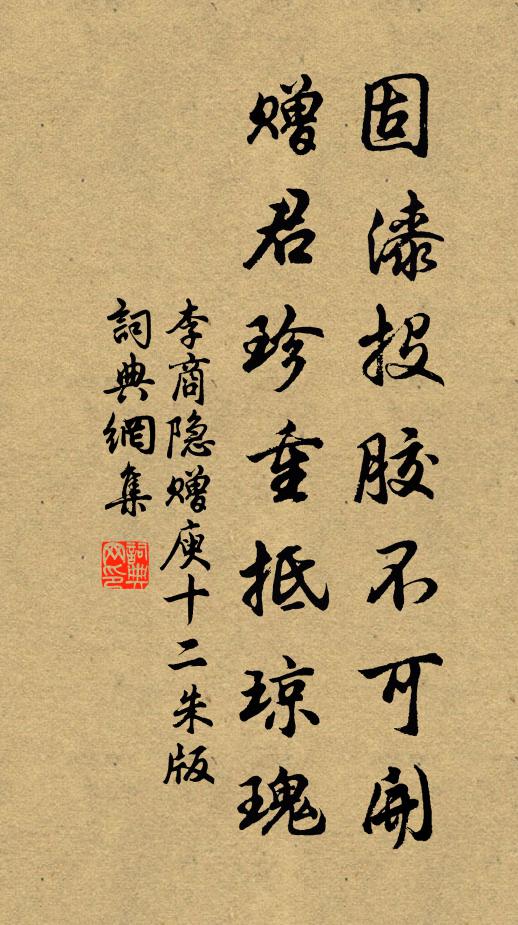 固漆投胶不可開
赠君珍重抵琼瑰
李商隐赠庾十二朱版
詞典網集
詞典网印